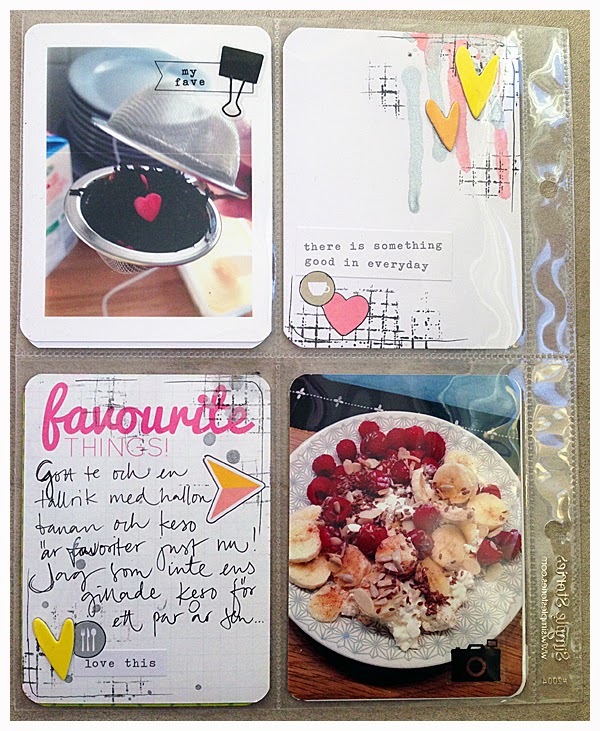 my
fave
there is something
good in everyday
favourite
THINGS!
Gott te och en
tallrik med hallon
banan och keso
är favoriter just nu!
Jag som inte ens
gillade keso för
ett par år sen...
love this
Simple Stories
www.simplestories.com